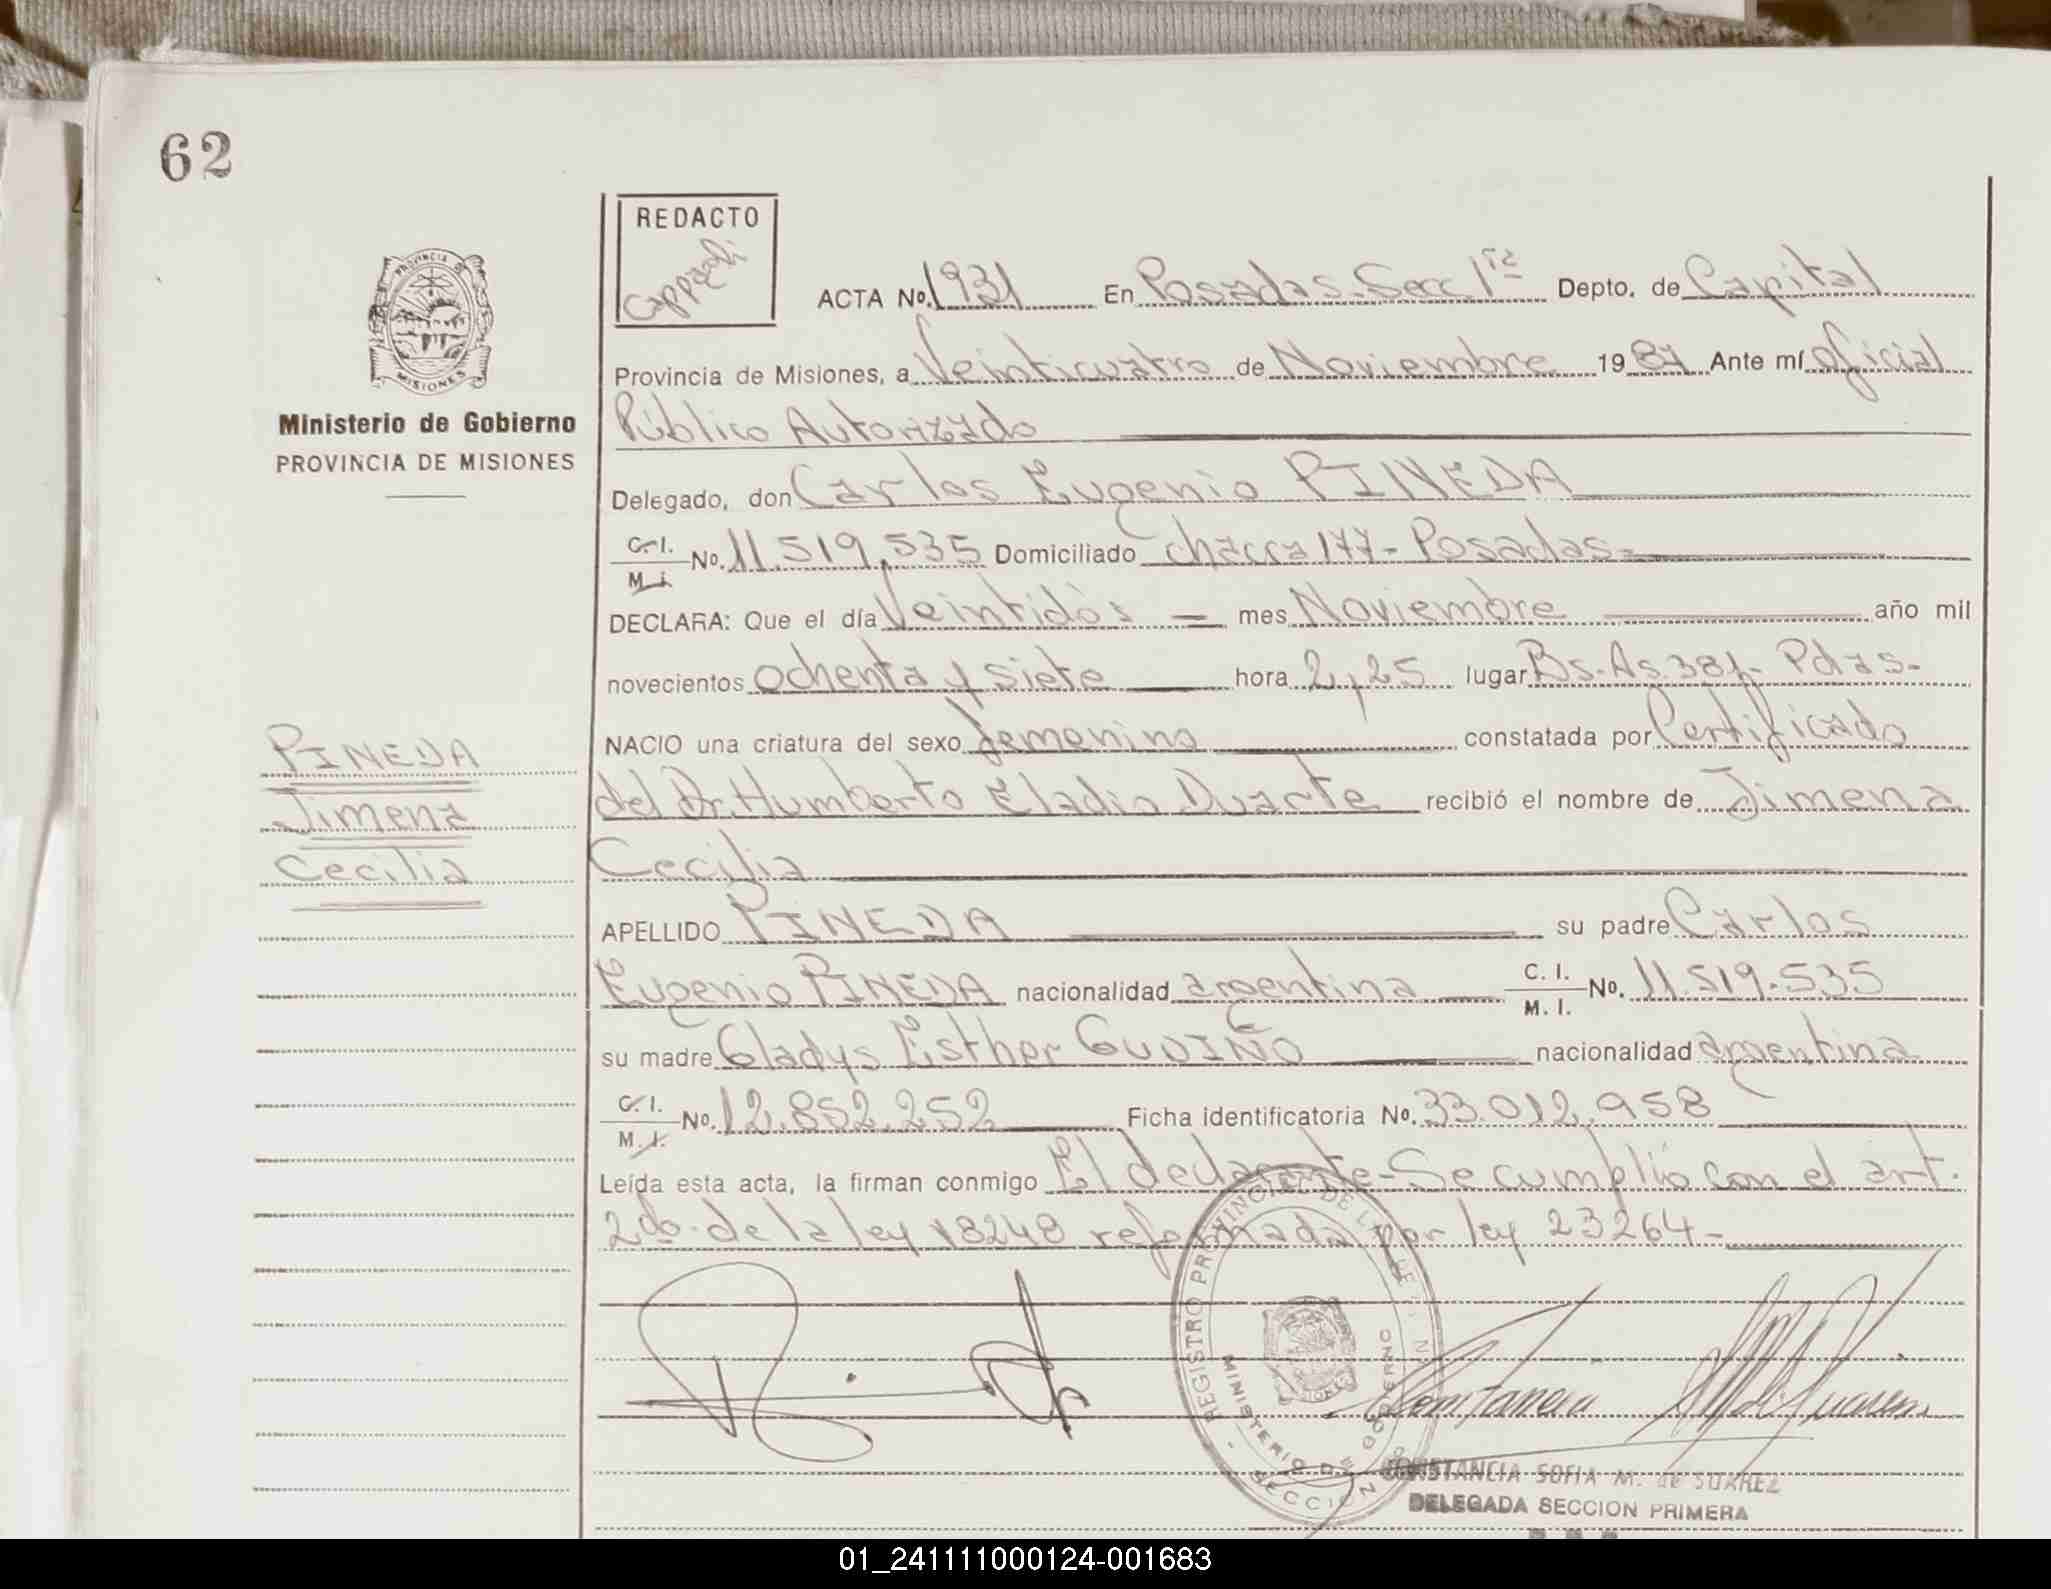 62
REDACTO
ACTA No. 1931 En Posadas-Secc 1ra Depto. de Capital
Provincia de Misiones, a Veinticuatro de Noviembre 1987 Ante mí oficial
Público Autorizado
Ministerio de Gobierno
PROVINCIA DE MISIONES
Delegado, don Carlos Eugenio PINEDA
C.I. M.I. No. 11.519.535 Domiciliado Chacra 177-Posadas-
DECLARA: Que el día Veintidós mes Noviembre año mil
novecientos ochenta y siete hora 2,25 lugar Bs.As.381-Pdas-
NACIO una criatura del sexo femenino constatada por Certificado
del Dr. Humberto Eladio Duarte recibió el nombre de Jimena
Cecilia
PINEDA
Jimena
Cecilia
APELLIDO PINEDA su padre Carlos
Eugenio PINEDA nacionalidad argentina C. I. M. I. No. 11.519.535
su madre Gladys Esther GUDIÑO nacionalidad argentina
C.I. M.I. No. 12.852.252 Ficha identificatoria No. 33.012.958
Leída esta acta, la firman conmigo El declarante-Se cumplió con el art.
2do. de la ley 18248 reformada por ley 23264-
REGISTRO PROVINCIAL DE
MINISTERIO DE GOBIERNO
SECCION
CONSTANCIA SOFIA M. de SUAREZ
DELEGADA SECCION PRIMERA
01_241111000124-001683